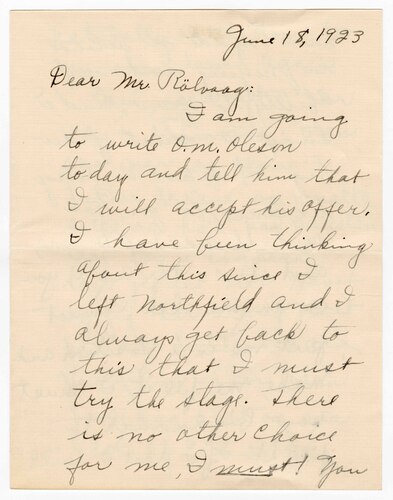 June 18, 1923
Dear Mr. Rölvaag:
I am going
to write O.M. Oleson
today and tell him that
I will accept his offer.
I have been thinking
about this since I
left Northfield and I
always get back to
this that I must
try the stage. There
is no other choice
for me, I must! You